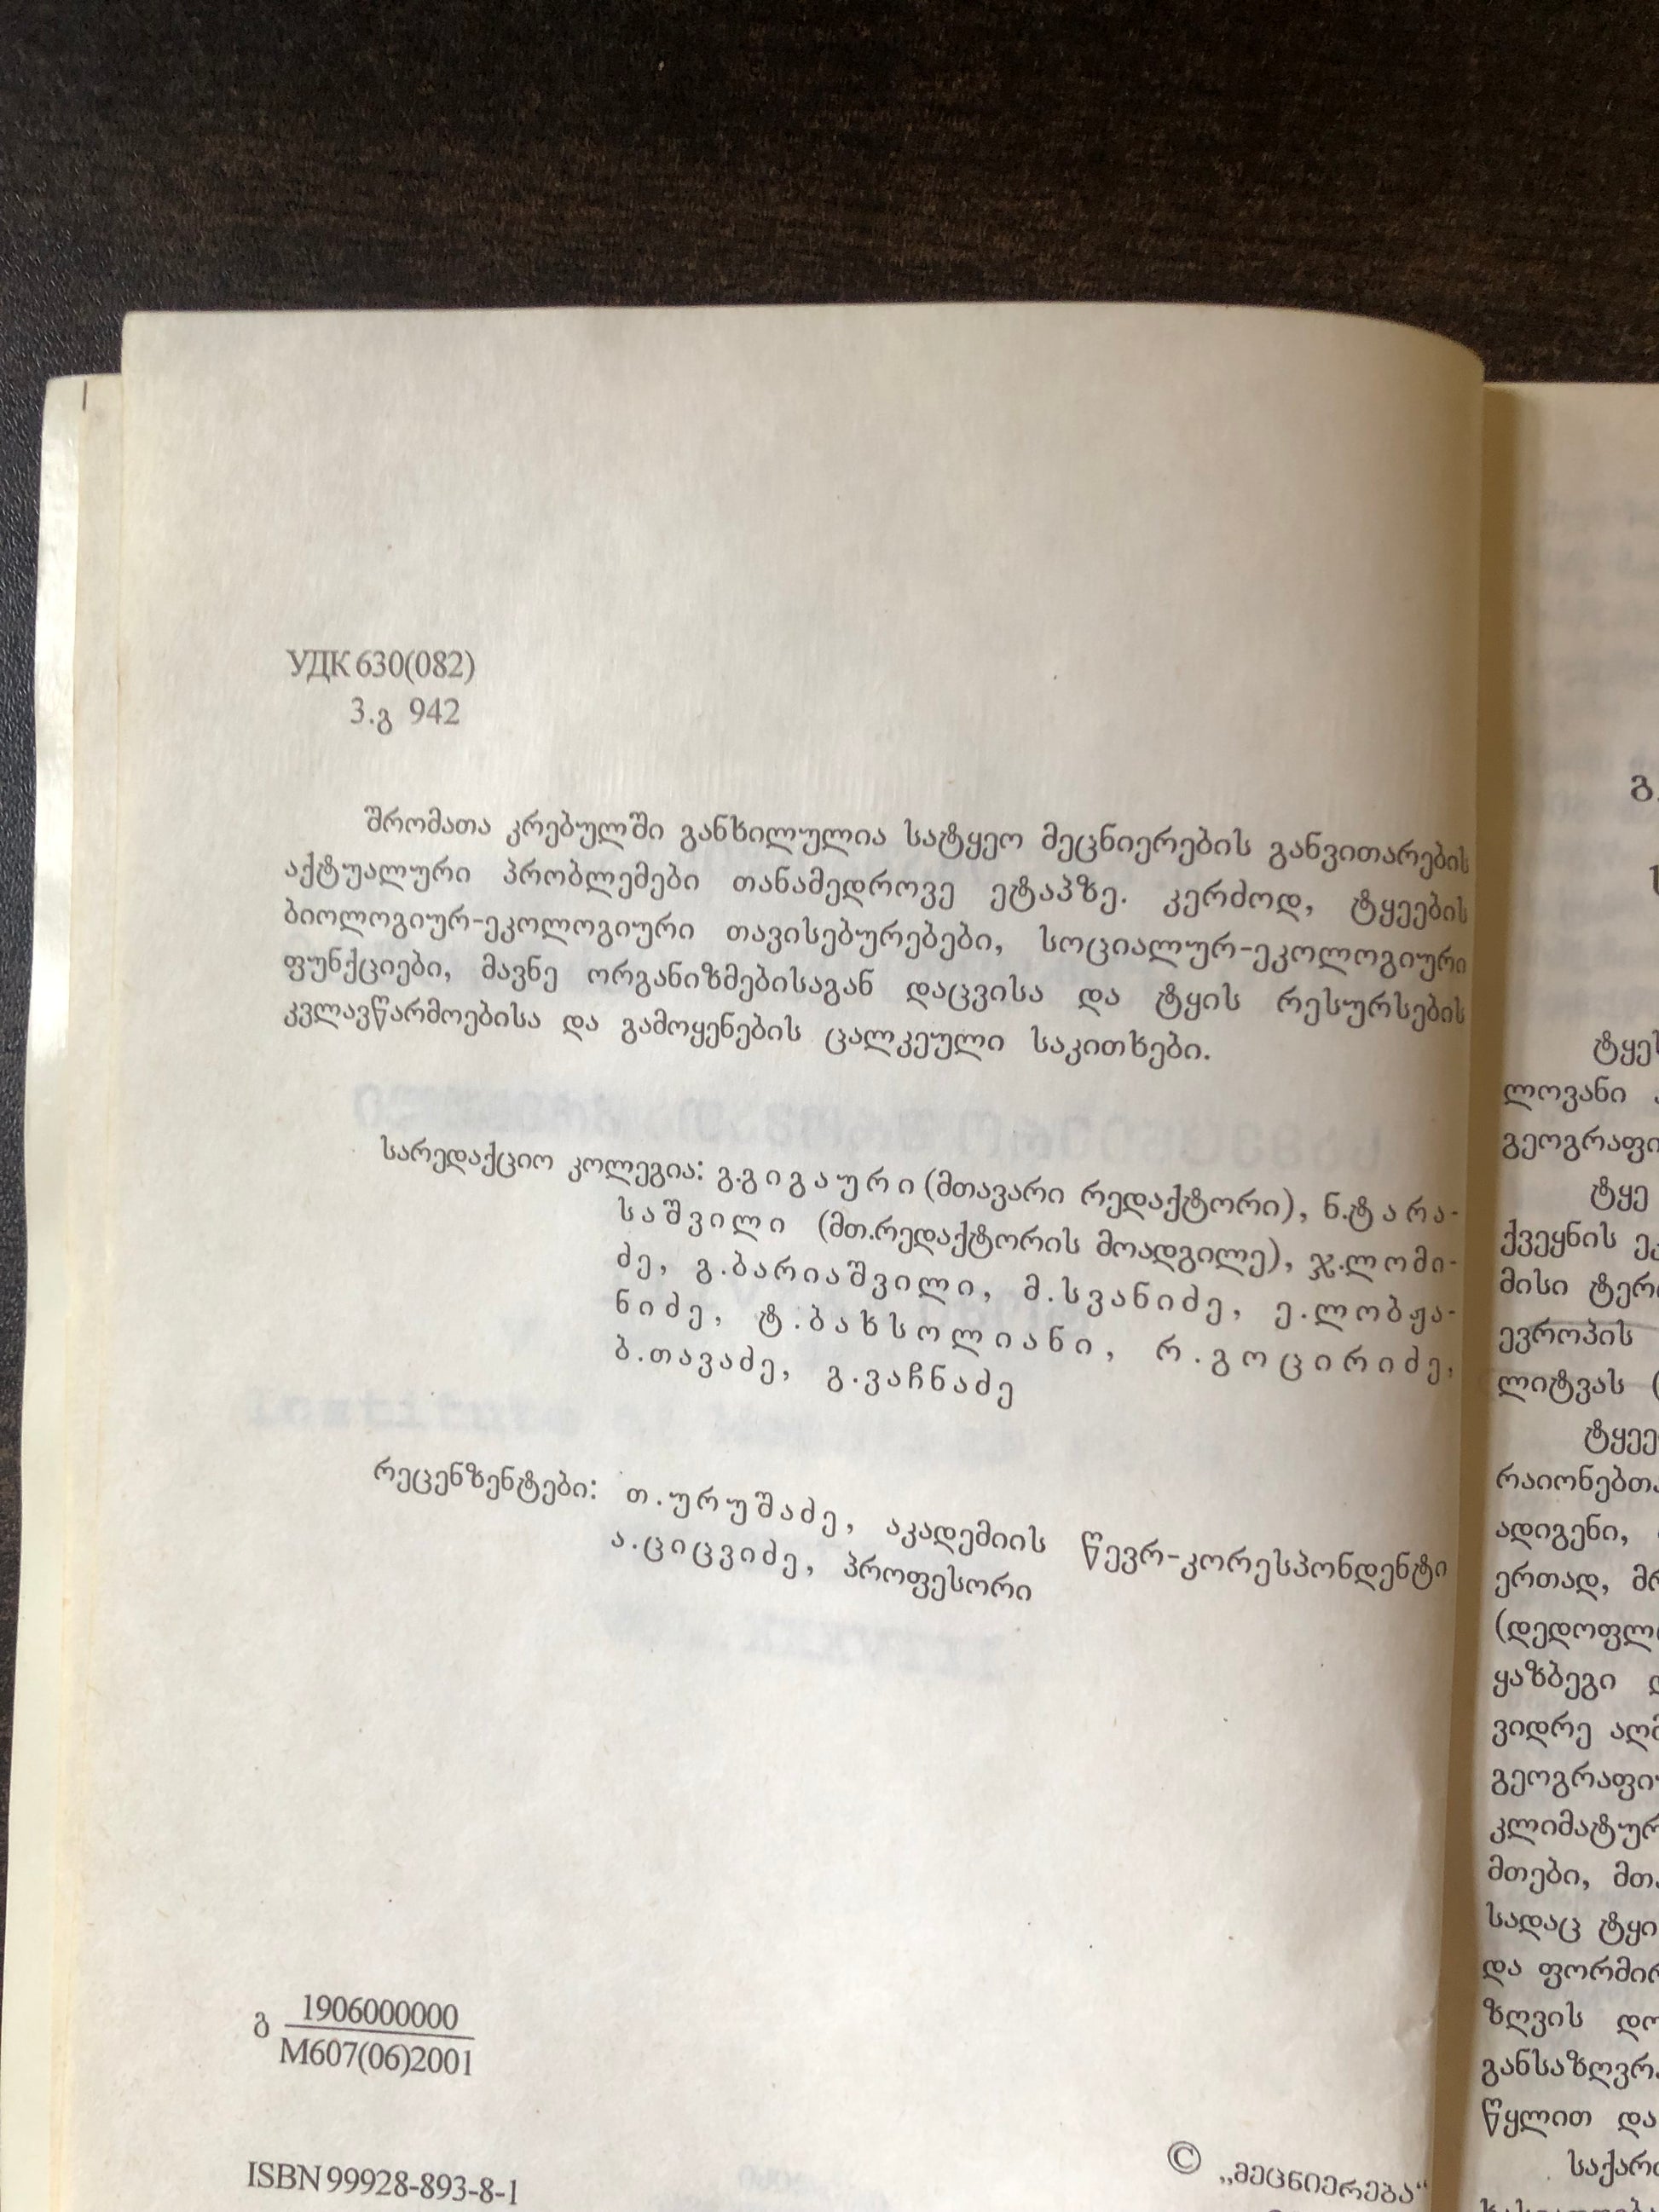 УДК 630(082)
3.გ 942
შრომათა კრებულში განხილულია სატყეო მეცნიერების განვითარების
აქტუალური პრობლემები თანამედროვე ეტაპზე. კერძოდ, ტყეების
ბიოლოგიურ-ეკოლოგიური თავისებურებები, სოციალურ-ეკოლოგიური
ფუნქციები, მავნე ორგანიზმებისაგან დაცვისა და ტყის რესურსების
კვლავწარმოებისა და გამოყენების ცალკეული საკითხები.
სარედაქციო კოლეგია: გ.გიგაური (მთავარი რედაქტორი), ნ.ტარა-
საშვილი (მთ.რედაქტორის მოადგილე), ჯ.ლომი-
ძე, გ.ბარიაშვილი, მ.სვანიძე, ე.ლობჟა-
ნიძე, ტ.ბახსოლიანი, რ.გოცირიძე,
ბ.თავაძე, გ.ვაჩნაძე
რეცენზენტები: თ.ურუშაძე, აკადემიის წევრ-კორესპონდენტი
ა.ციცვიძე, პროფესორი
გ 1906000000
M607(06)2001
ISBN 99928-893-8-1
© „მეცნიერება“
ტყეს
ლოვანი
გეოგრაფი
ტყე
ქვეყნის
მისი ტერ
ევროპის
ლიტვას (
ტყეე
რაიონებთა
ადიგენი,
ერთად, მრ
(დედოფლ
ყაზბეგი
ვიდრე აღმ
გეოგრაფიუ
კლიმატურ
მთები, მთა
სადაც ტყი
და ფორმირ
ზღვის დო
განსაზღვრა
წყლით და
საქარ